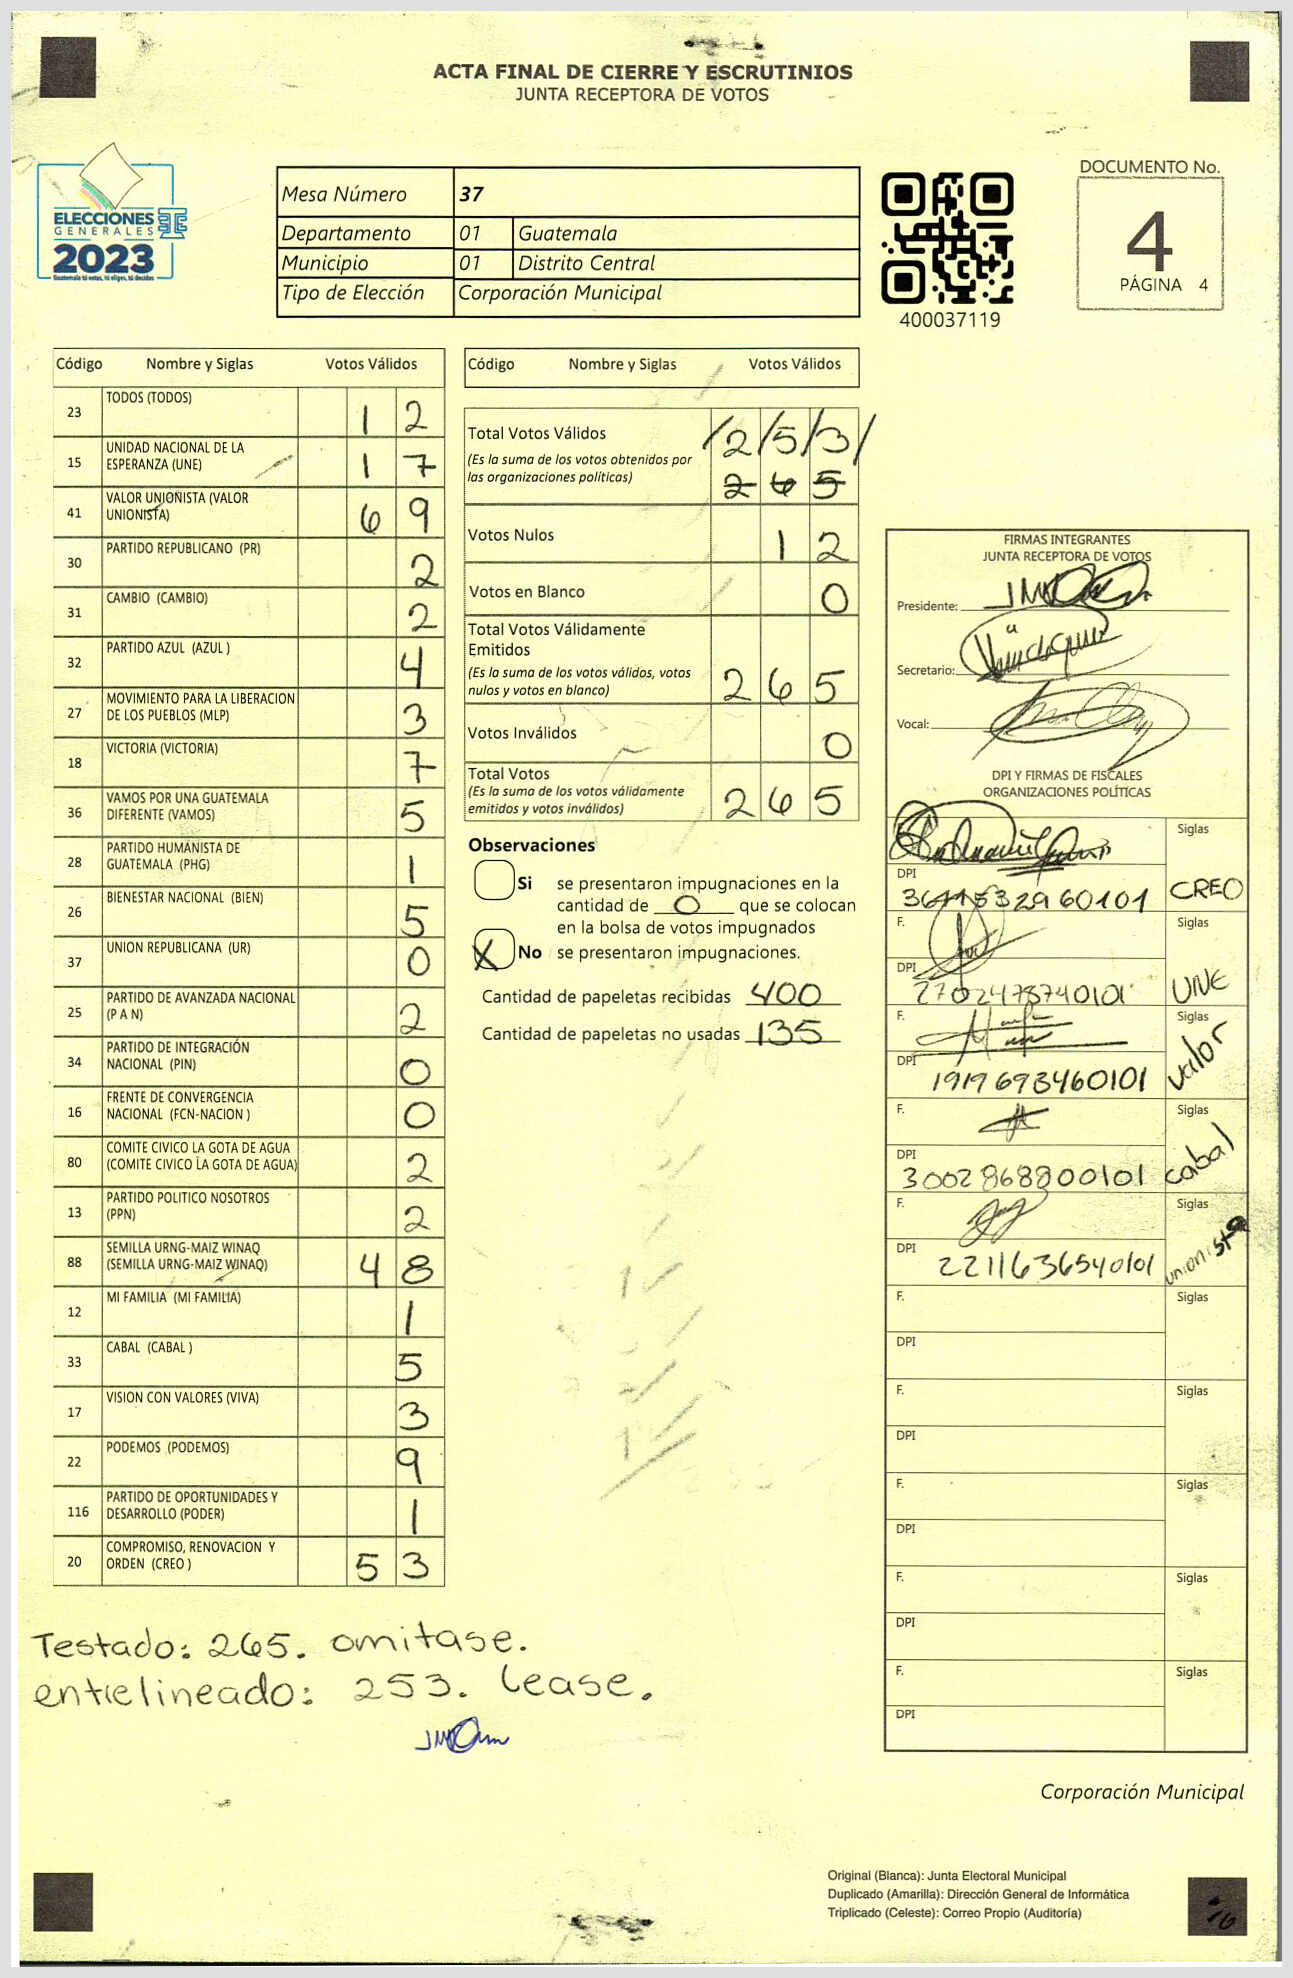 ACTA FINAL DE CIERRE Y ESCRUTINIOS
JUNTA RECEPTORA DE VOTOS
ELECCIONES
GENERALES
2023
Guatemala tú votas, tú eliges, tú decides
Mesa Número 37
Departamento 01 Guatemala
Municipio 01 Distrito Central
Tipo de Elección Corporación Municipal
400037119
DOCUMENTO No.
4
PÁGINA 4
Código Nombre y Siglas Votos Válidos
23 TODOS (TODOS) 1 2
15 UNIDAD NACIONAL DE LA
ESPERANZA (UNE) 1 7
41 VALOR UNIONISTA (VALOR
UNIONISTA) 6 9
30 PARTIDO REPUBLICANO (PR) 2
31 CAMBIO (CAMBIO) 2
32 PARTIDO AZUL (AZUL ) 4
27 MOVIMIENTO PARA LA LIBERACION
DE LOS PUEBLOS (MLP) 3
18 VICTORIA (VICTORIA) 7
36 VAMOS POR UNA GUATEMALA
DIFERENTE (VAMOS) 5
28 PARTIDO HUMANISTA DE
GUATEMALA (PHG) 1
26 BIENESTAR NACIONAL (BIEN) 5
37 UNION REPUBLICANA (UR) 0
25 PARTIDO DE AVANZADA NACIONAL
(P A N) 2
34 PARTIDO DE INTEGRACIÓN
NACIONAL (PIN) 0
16 FRENTE DE CONVERGENCIA
NACIONAL (FCN-NACION ) 0
80 COMITE CIVICO LA GOTA DE AGUA
(COMITE CIVICO LA GOTA DE AGUA) 2
13 PARTIDO POLITICO NOSOTROS
(PPN) 2
88 SEMILLA URNG-MAIZ WINAQ
(SEMILLA URNG-MAIZ WINAQ) 4 8
12 MI FAMILIA (MI FAMILIA) 1
33 CABAL (CABAL ) 5
17 VISION CON VALORES (VIVA) 3
22 PODEMOS (PODEMOS) 9
116 PARTIDO DE OPORTUNIDADES Y
DESARROLLO (PODER) 1
20 COMPROMISO, RENOVACION Y
ORDEN (CREO ) 5 3
Código Nombre y Siglas Votos Válidos
Total Votos Válidos /2/5/3/
(Es la suma de los votos obtenidos por
las organizaciones políticas) 2 6 5
Votos Nulos 1 2
Votos en Blanco 0
Total Votos Válidamente
Emitidos
(Es la suma de los votos válidos, votos
nulos y votos en blanco) 2 6 5
Votos Inválidos 0
Total Votos
(Es la suma de los votos válidamente
emitidos y votos inválidos) 2 6 5
Observaciones
Si se presentaron impugnaciones en la
cantidad de 0 que se colocan
en la bolsa de votos impugnados
X No se presentaron impugnaciones.
Cantidad de papeletas recibidas 400
Cantidad de papeletas no usadas 135
FIRMAS INTEGRANTES
JUNTA RECEPTORA DE VOTOS
Presidente:
Secretario:
Vocal:
DPI Y FIRMAS DE FISCALES
ORGANIZACIONES POLÍTICAS
Siglas
DPI
CREO
F. Siglas
DPI
2702478740101 UNE
F. Siglas
DPI
1919693460101 valor
F. Siglas
DPI
3002868800101 cabal
F. Siglas
DPI
2211636540101 unionista
F. Siglas
DPI
F. Siglas
DPI
F. Siglas
DPI
F. Siglas
DPI
F. Siglas
DPI
Testado: 265. omitase.
entrelineado: 253. lease.
Corporación Municipal
Original (Blanca): Junta Electoral Municipal
Duplicado (Amarilla): Dirección General de Informática
Triplicado (Celeste): Correo Propio (Auditoría)